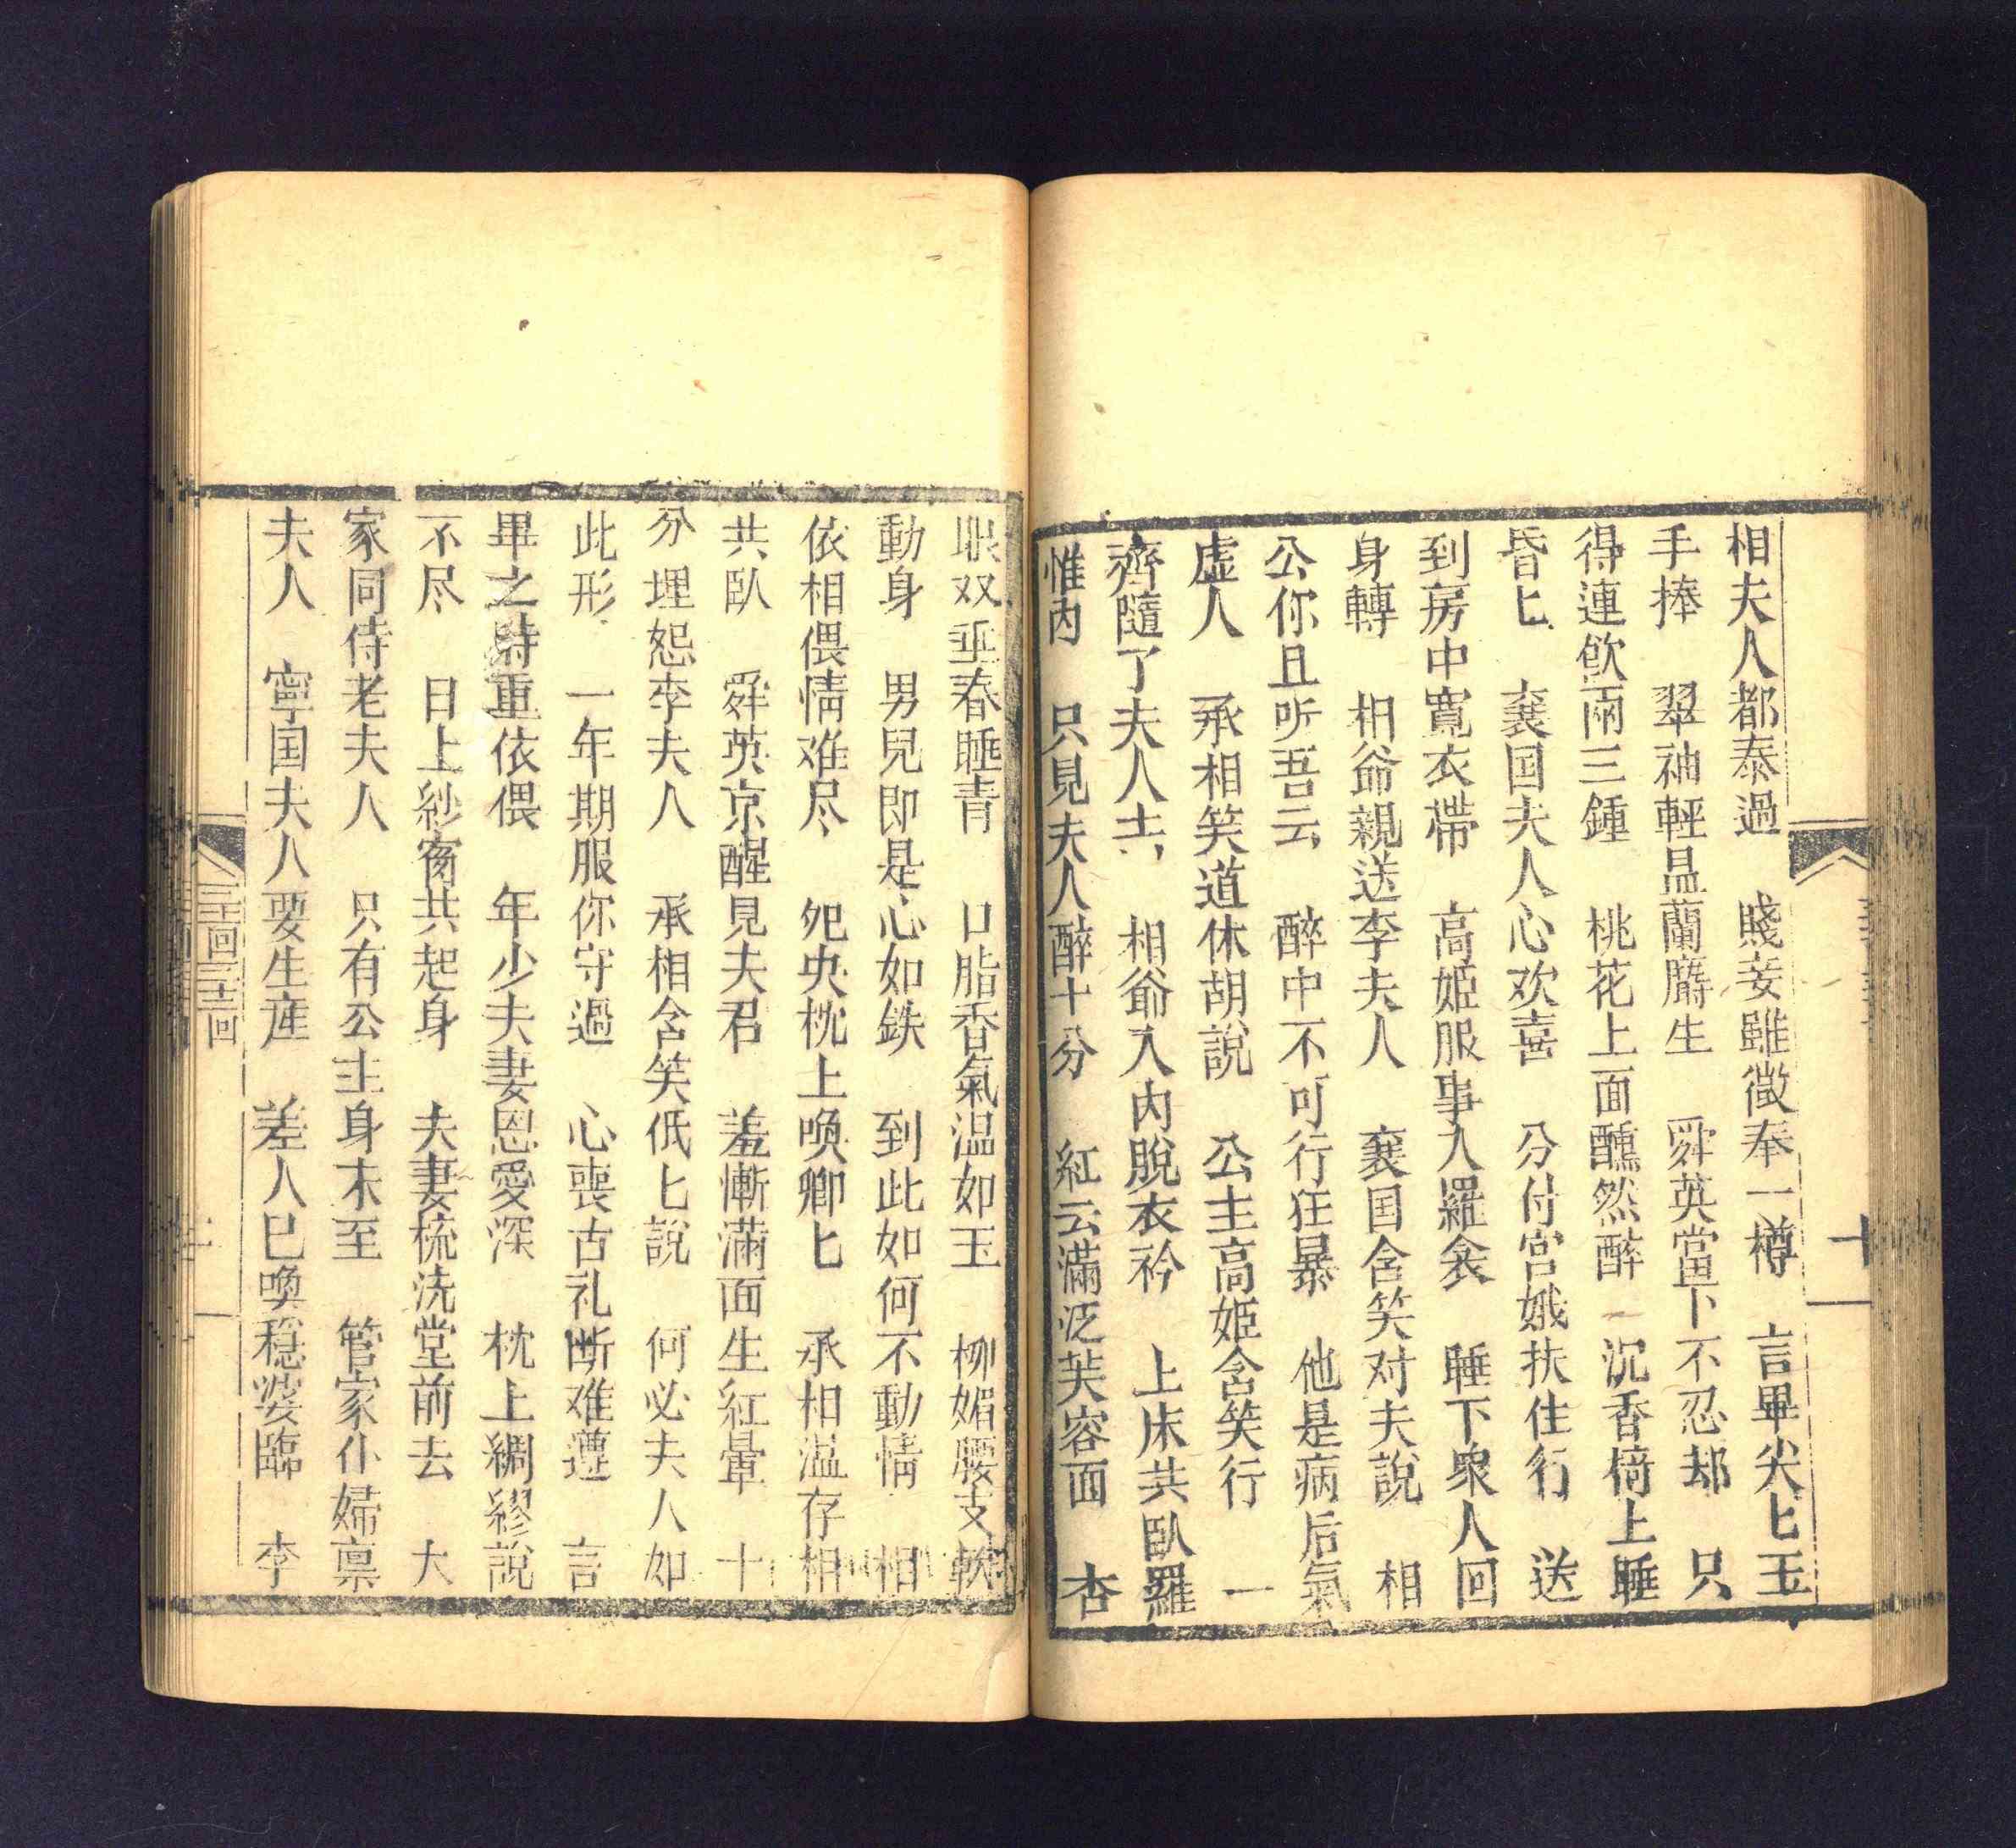 相夫人都泰過　賤妾雖微奉一樽　言畢尖匕玉
手捧　翠袖輕昷蘭麝生　舜英當下不忍却　只
得連飲兩三鍾　桃花上面醺然醉　沉香椅上睡
昏匕　襄国夫人心欢喜　分付宮娥扶住行　送
到房中寬衣帶　高姬服事入羅衾　睡下衆人回
身轉　相爺親送李夫人　襄国含笑对夫說　相
公你且听吾云　醉中不可行狂暴　他是病后氣
虛人　承相笑道休胡說　公主高姬含笑行　一
齊隨了夫人去　相爺入內脫衣衿　上床共臥羅
惟內　只見夫人醉十分　紅云滿泛芙容面　杏
眼双垂春睡青　口脂香氣温如玉　柳媚腰支軟
動身　男兒即是心如鉄　到此如何不動情　相
依相偎情难尽　夗央枕上喚卿匕　承相温存相
共臥　舜英京醒見夫君　羞慚滿面生紅暈　十
分埋怨李夫人　承相含笑低匕說　何必夫人如
此形　一年期服你守過　心喪古礼断难遵　言
畢之時重依偎　年少夫妻恩愛深　枕上綢繆說
不尽　日上紗窗共起身　夫妻梳洗堂前去　大
家同侍老夫人　只有公主身未至　管家仆婦禀
夫人　寧国夫人要生產　差人已喚穩婆臨　李